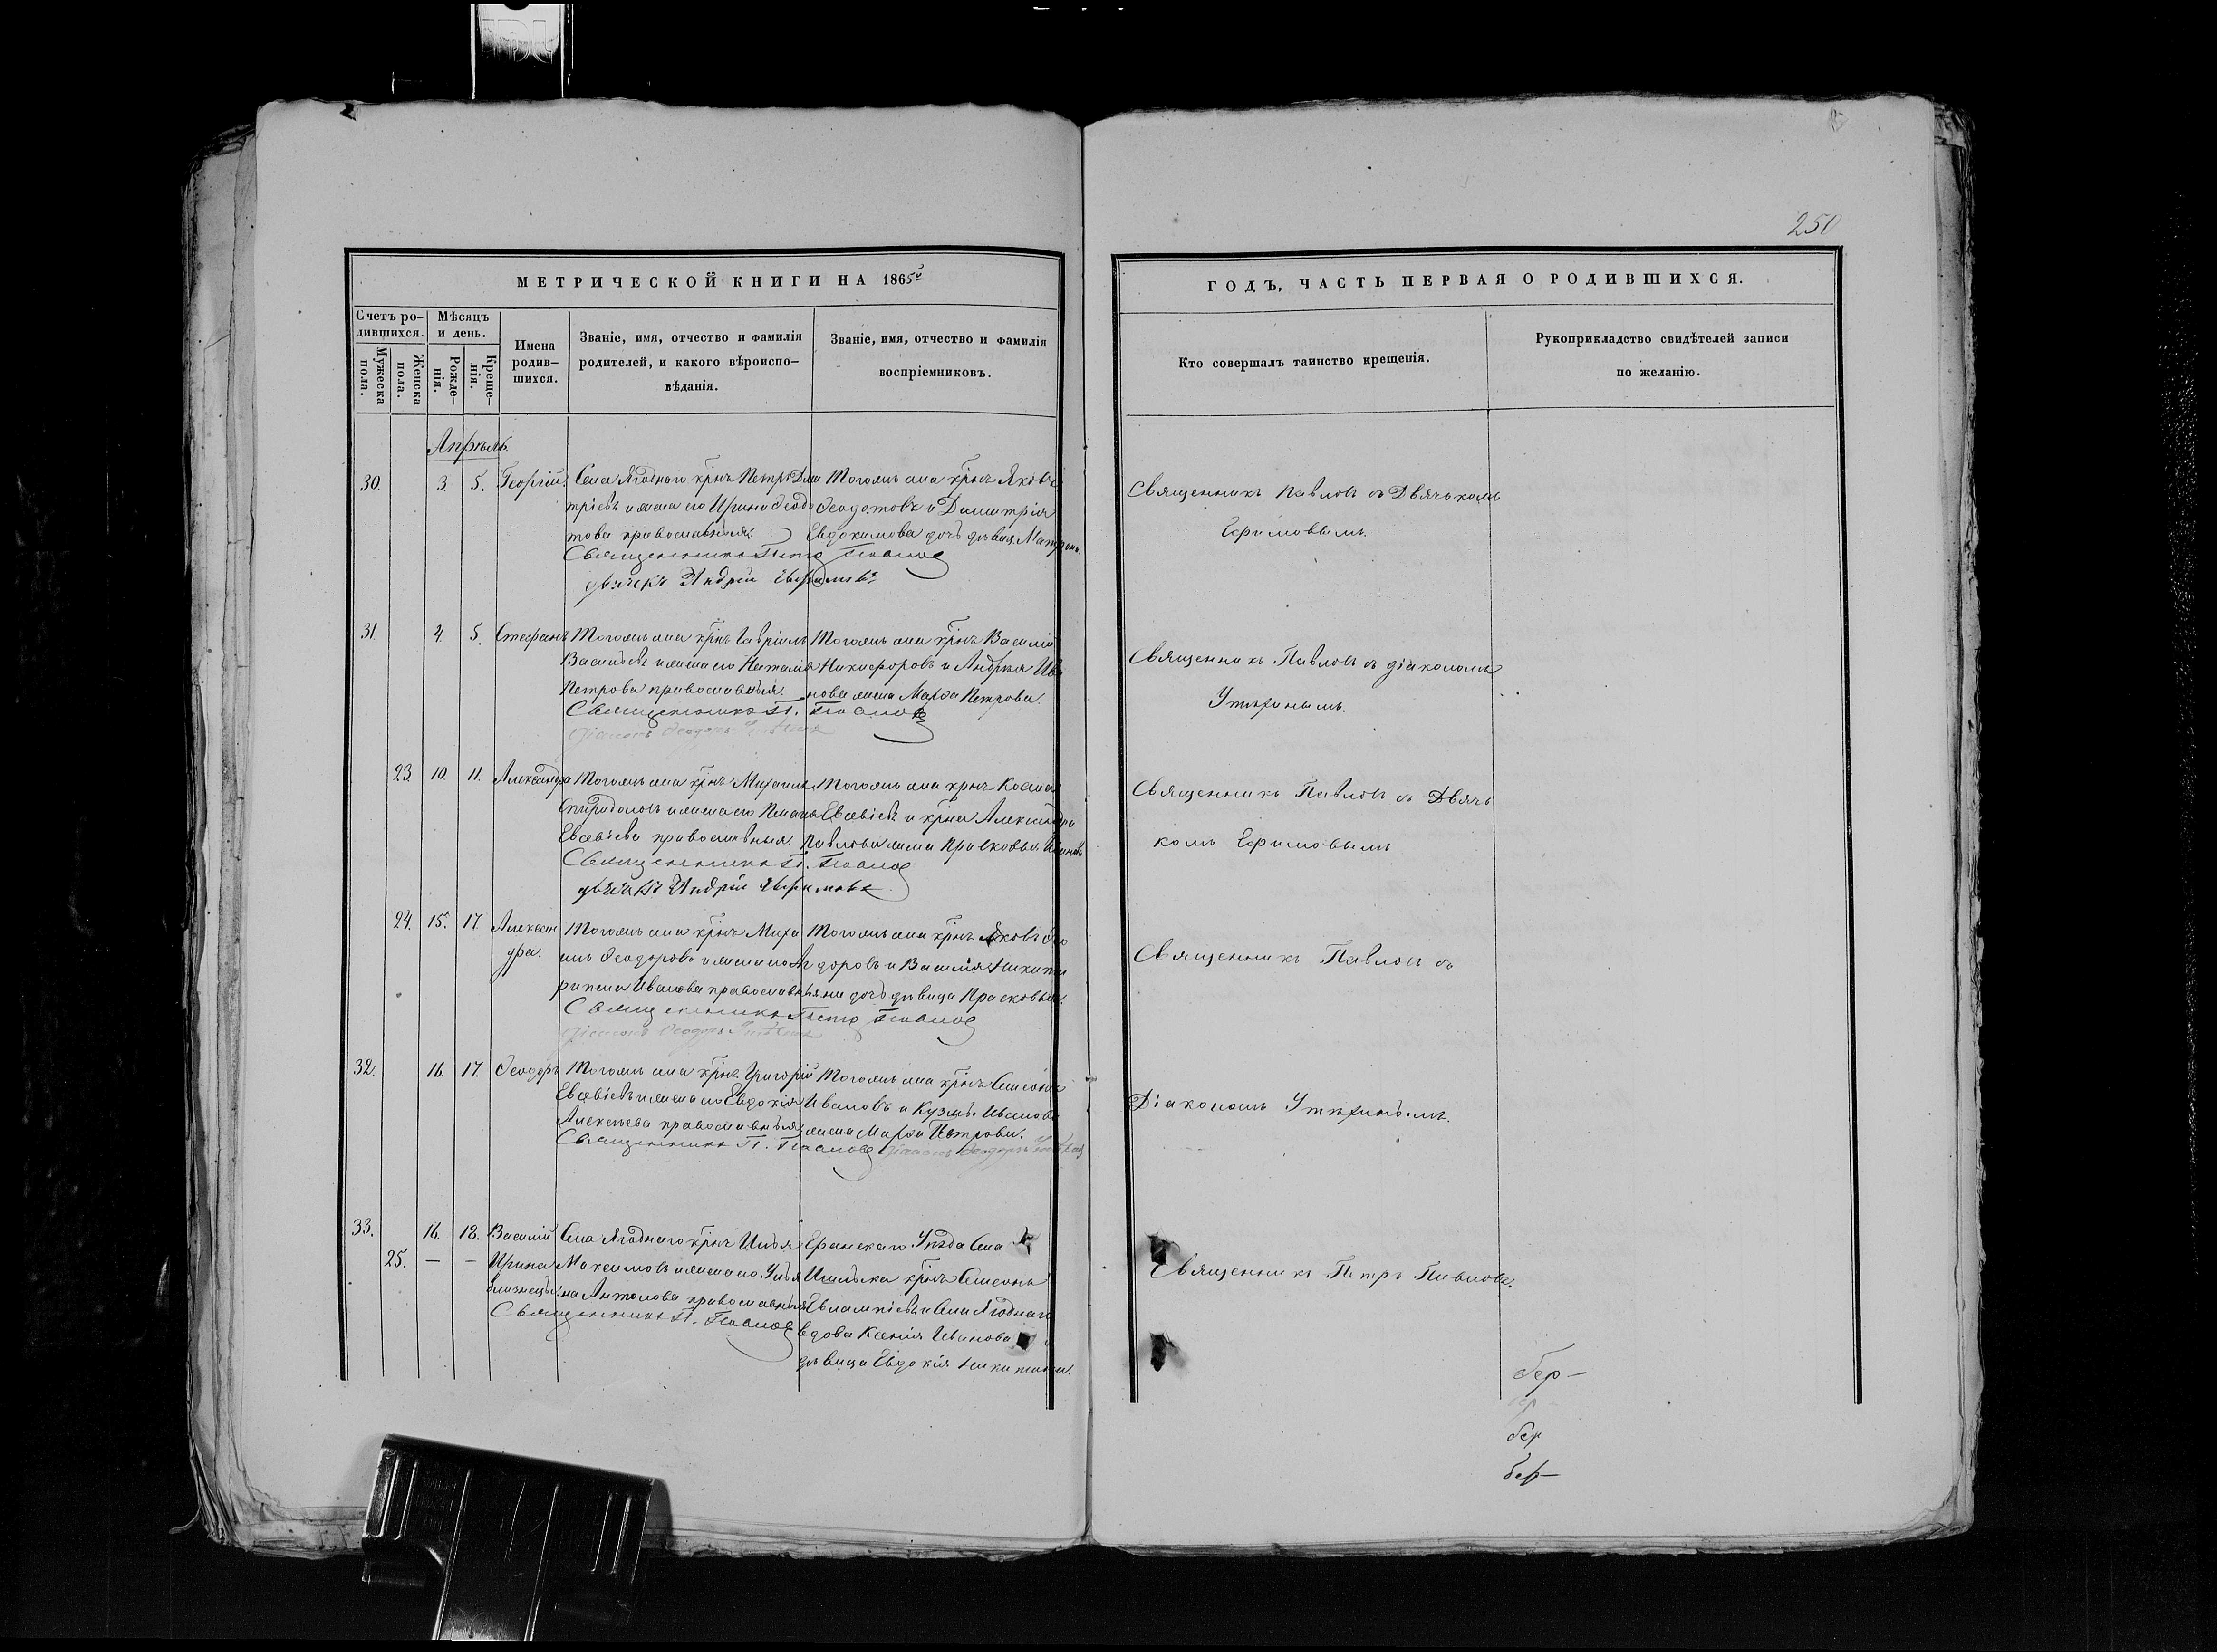 250
МЕТРИЧЕСКОЙ КНИГИ НА 1865й
ГОДЪ, ЧАСТЬ ПЕРВАЯ О РОДИВШИХСЯ.
Счетъ ро-
дившихся.
Мужеска
пола.
Женска
пола.
Мѣсяцъ
и день.
Рожде-
нія.
Креще-
нія.
Имена
родив-
шихся.
Званіе, имя, отчество и фамилія
родителей, и какого вѣроиспо-
вѣданія.
Званіе, имя, отчество и фамилія
воспріемниковъ.
Кто совершалъ таинство крещенія.
Рукоприкладство свидѣтелей записи
по желанію.
Апрѣль.
30. 3. 5. Георгій.
Села Ягоднаго крнъ Петръ Дми
тріевъ и жена его Ирина Ѳеодо
това православныя.
Священникъ Петръ Павловъ
дьячекъ Андрей Ефимовъ
Тогожъ села крнъ Яковъ
Ѳеодотовъ и Димитрія
Евдокимова дочь дѣвица Матрона.
Священникъ Павловъ съ Дьячькомъ
Ефимовымъ.
31. 4. 5. Стефанъ
Тогожъ села крнъ Гавріилъ
Васильевъ и жена его Наталія
Петрова православныя.
Священникъ П. Павловъ
діаконъ Ѳеодоръ Утѣхинъ
Тогожъ села крнъ Василій
Никифоровъ и Андрея Ива
нова жена Марѳа Петрова.
Священникъ Павловъ съ діакономъ
Утѣхинымъ.
23. 10. 11. Александра
Тогожъ села крнъ Михаилъ
Спиридоновъ и жена его
Евсевіева православныя.
Священникъ П. Павловъ
дьячекъ Андрей Ефимовъ
Тогожъ села крнъ Косма
Евсевіевъ и крна Александра
Павлова жена Прасковья Иванова
Священникъ Павловъ съ Дьячь
комъ Ефимовымъ
24. 15. 17. Алексан
дра.
Тогожъ села крнъ Миха
илъ Ѳеодоровъ и жена его Аг
рипена Иванова православныя
Священникъ Петръ Павловъ
діаконъ Ѳеодоръ Утѣхинъ
Тогожъ села крнъ Яковъ Ѳео
доровъ и Василія Никити
на дочь дѣвица Прасковья.
Священникъ Павловъ съ
32. 16. 17. Ѳеодоръ
Тогожъ села крнъ Григорій
Евсевіевъ и жена его Евдокія
Алексѣева православныя
Священникъ П. Павловъ діаконъ Ѳеодоръ Утѣхинъ
Тогожъ села крнъ Симеонъ
Ивановъ и Кузмы Иванова
жена Марѳа Петрова.
Діакономъ Утѣхинымъ.
33. 16. 18. Василій
25. — — Ирина
близнецы.
Села Ягоднаго крнъ Илья
Максимовъ и жена его Улья
на Антонова православныя
Священникъ П. Павловъ
Еранскаго Уѣзда Села
крнъ Симеонъ
Евлампіевъ и Села Ягоднаго
вдова Ксенія Иванова
дѣвица Евдокія Никитина.
Священникъ Петръ Павловъ.
бер—
бер
бер—